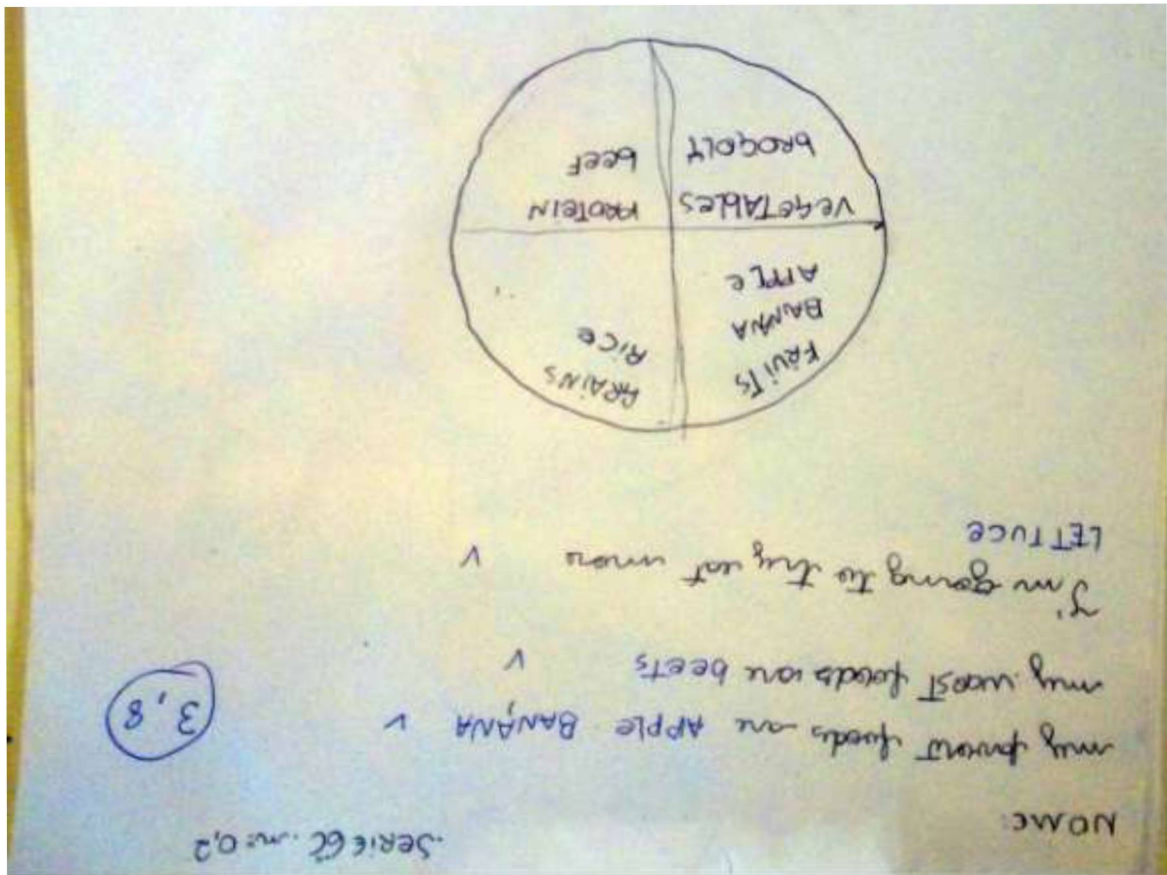 NOME:
SERIE 6C. n: 0,2
my favorit foods are APPLE BANANA v
3,8
my worst foods are beets v
I'm going to try eat more v
LETTUCE
FRUITS
BANNA
APPLE
GRAINS
RICE
VEGETABLES
BROÇOLY
PROTEIN
beef